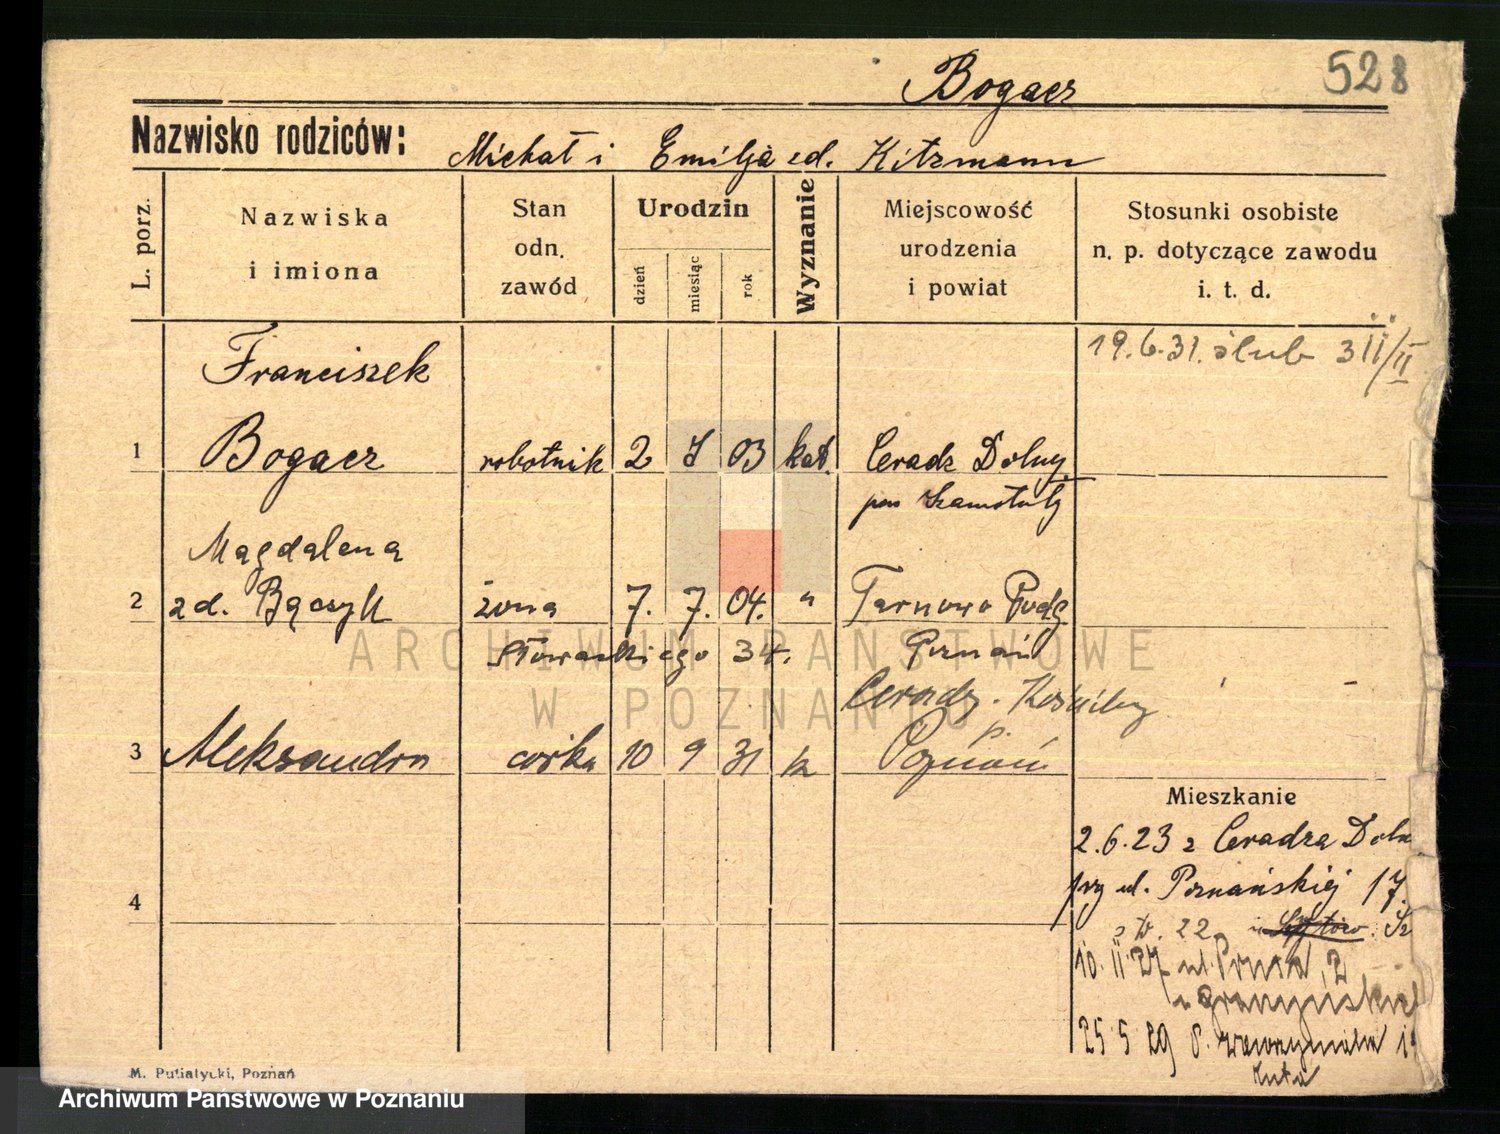 Bogacz
528
Nazwisko rodziców: Michał i Emilja zd. Kitzmann
L. porz.
Nazwiska
i imiona
Stan
odn.
zawód
Urodzin
dzień
miesiąc
rok
Wyznanie
Miejscowość
urodzenia
i powiat
Stosunki osobiste
n. p. dotyczące zawodu
i. t. d.
19.6.31. ślub
Franciszek
1 Bogacz robotnik 2 03 kat. Ceradz Dolny
pow Szamotuły
Magdalena
2 zd. Bączyk żona 7. 7. 04. " Tarnowo Podg
Słowackiego 34. Poznań
Ceradz. Kościelny
p.
3 Aleksandra córka 10 9 31 k Poznań
Mieszkanie
2.6.23 z Ceradza Doln
przy ul. Poznańskiej 17.
4
22
10.11.27 ul. Prusa, 2
25 5 29
M. Putiatycki, Poznań
ARCHIWUM PAŃSTWOWE
W POZNANIU
Archiwum Państwowe w Poznaniu